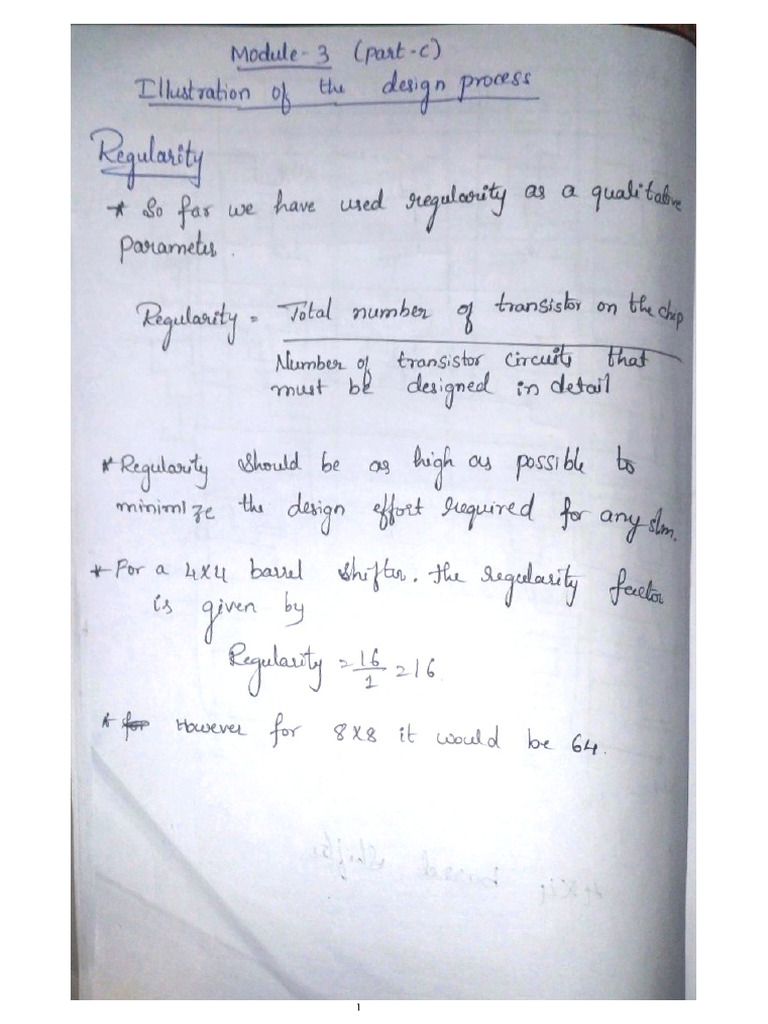 Module-3 (part-c)
Illustration of the design process
Regularity
* So far we have used regularity as a qualitative
parameter.
Regularity = Total number of transistor on the chip
Number of transistor circuits that
must be designed in detail
* Regularity should be as high as possible to
minimize the design effort required for any s/m.
* For a 4x4 barrel shifter. the regularity factor
is given by
Regularity = 16/1 = 16
* for However for 8x8 it would be 64.
1